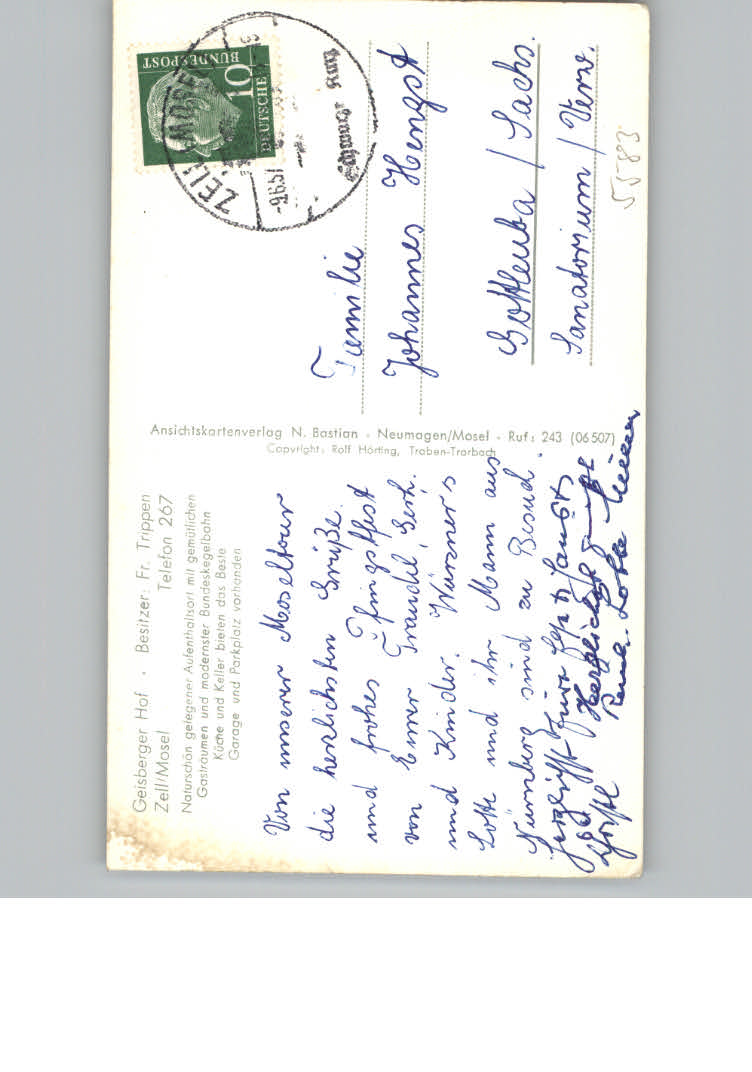 Geisberger Hof · Besitzer: Fr. Trippen
Zell/Mosel Telefon 267
Naturschön gelegener Aufenthaltsort mit gemütlichen
Gasträumen und modernster Bundeskegelbahn
Küche und Keller bieten das Beste
Garage und Parkplatz vorhanden
Von unserer Moseltour
die herzlichsten Grüße
und frohes Pfingstfest
von Eurer Grandel, Gerh.
und Kinder. Würzner's
Lotte und ihr Mann aus
Nürnberg sind zu Besuch.
Herzlichst
Lotte
Ansichtskartenverlag N. Bastian - Neumagen/Mosel - Ruf: 243 (06507)
Copyright: Rolf Hörting, Traben-Trarbach
DEUTSCHE
BUNDESPOST
10
ZELL
Schwarze Katz
Familie
Johannes Hengst
Gottleuba / Sachs.
Sanatorium / Verw.
5583